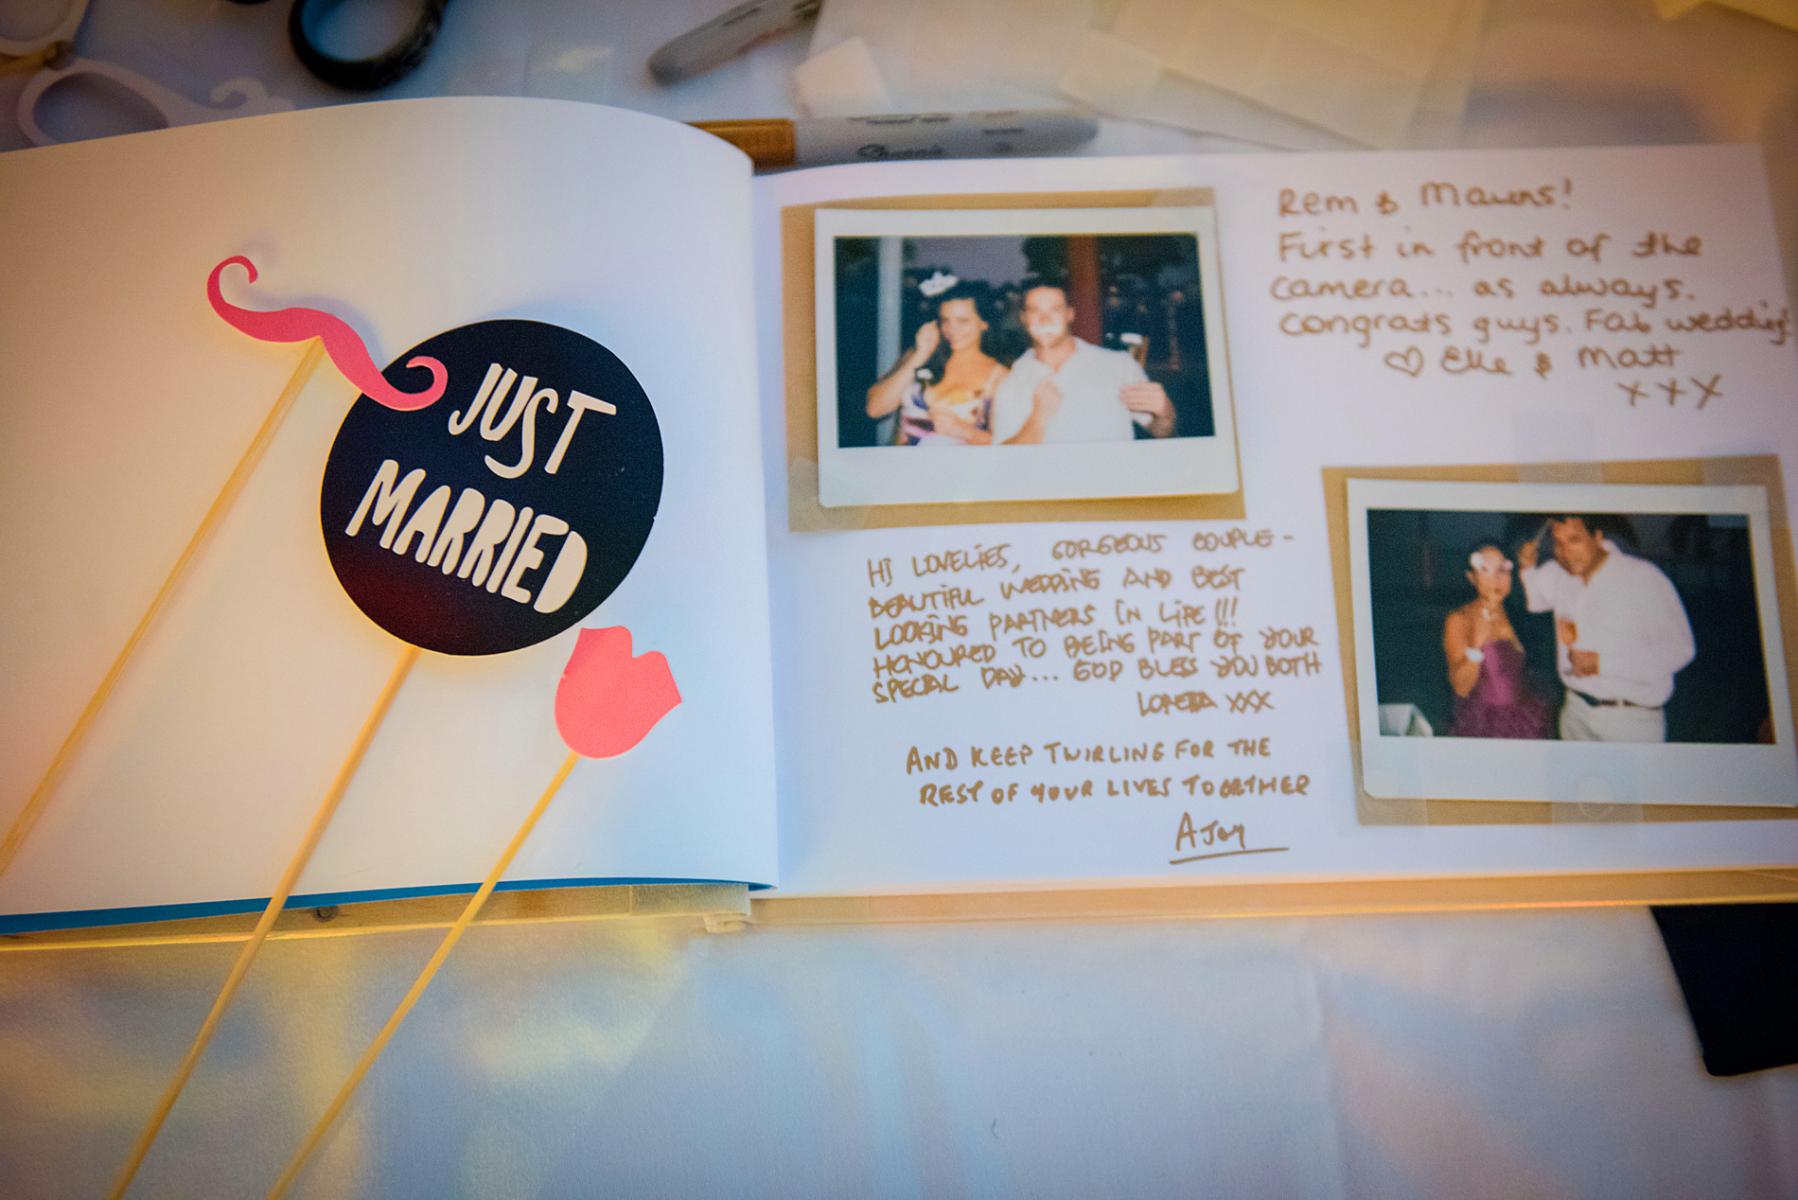 JUST
MARRIED
Sharpie
Rem & Mauns!
First in front of the
camera... as always.
Congrats guys. Fab wedding!
♡ Elle & Matt
xxx
HI LOVELIES, GORGEOUS COUPLE -
BEAUTIFUL WEDDING AND BEST
LOOKING PARTNERS IN LIFE!!!
HONOURED TO BEING PART OF YOUR
SPECIAL DAY... GOD BLESS YOU BOTH
LORETTA XXX
AND KEEP TWIRLING FOR THE
REST OF YOUR LIVES TOGETHER
AJay